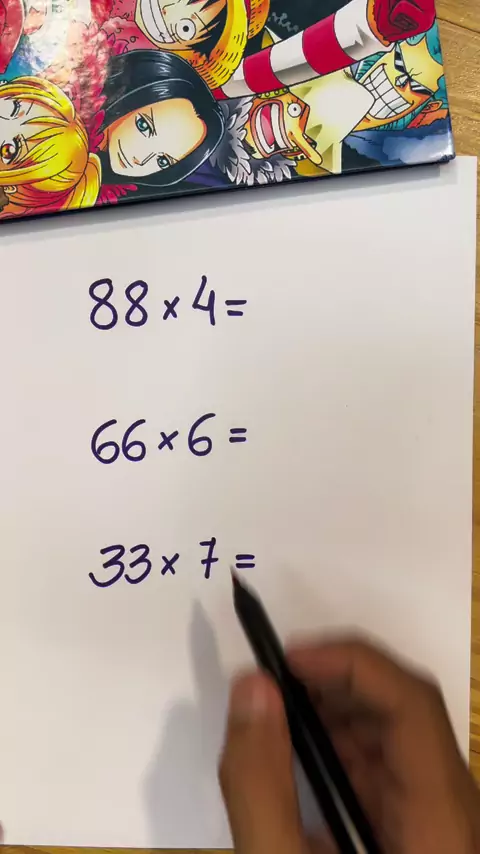 88 × 4 =
66 × 6 =
33 × 7 =